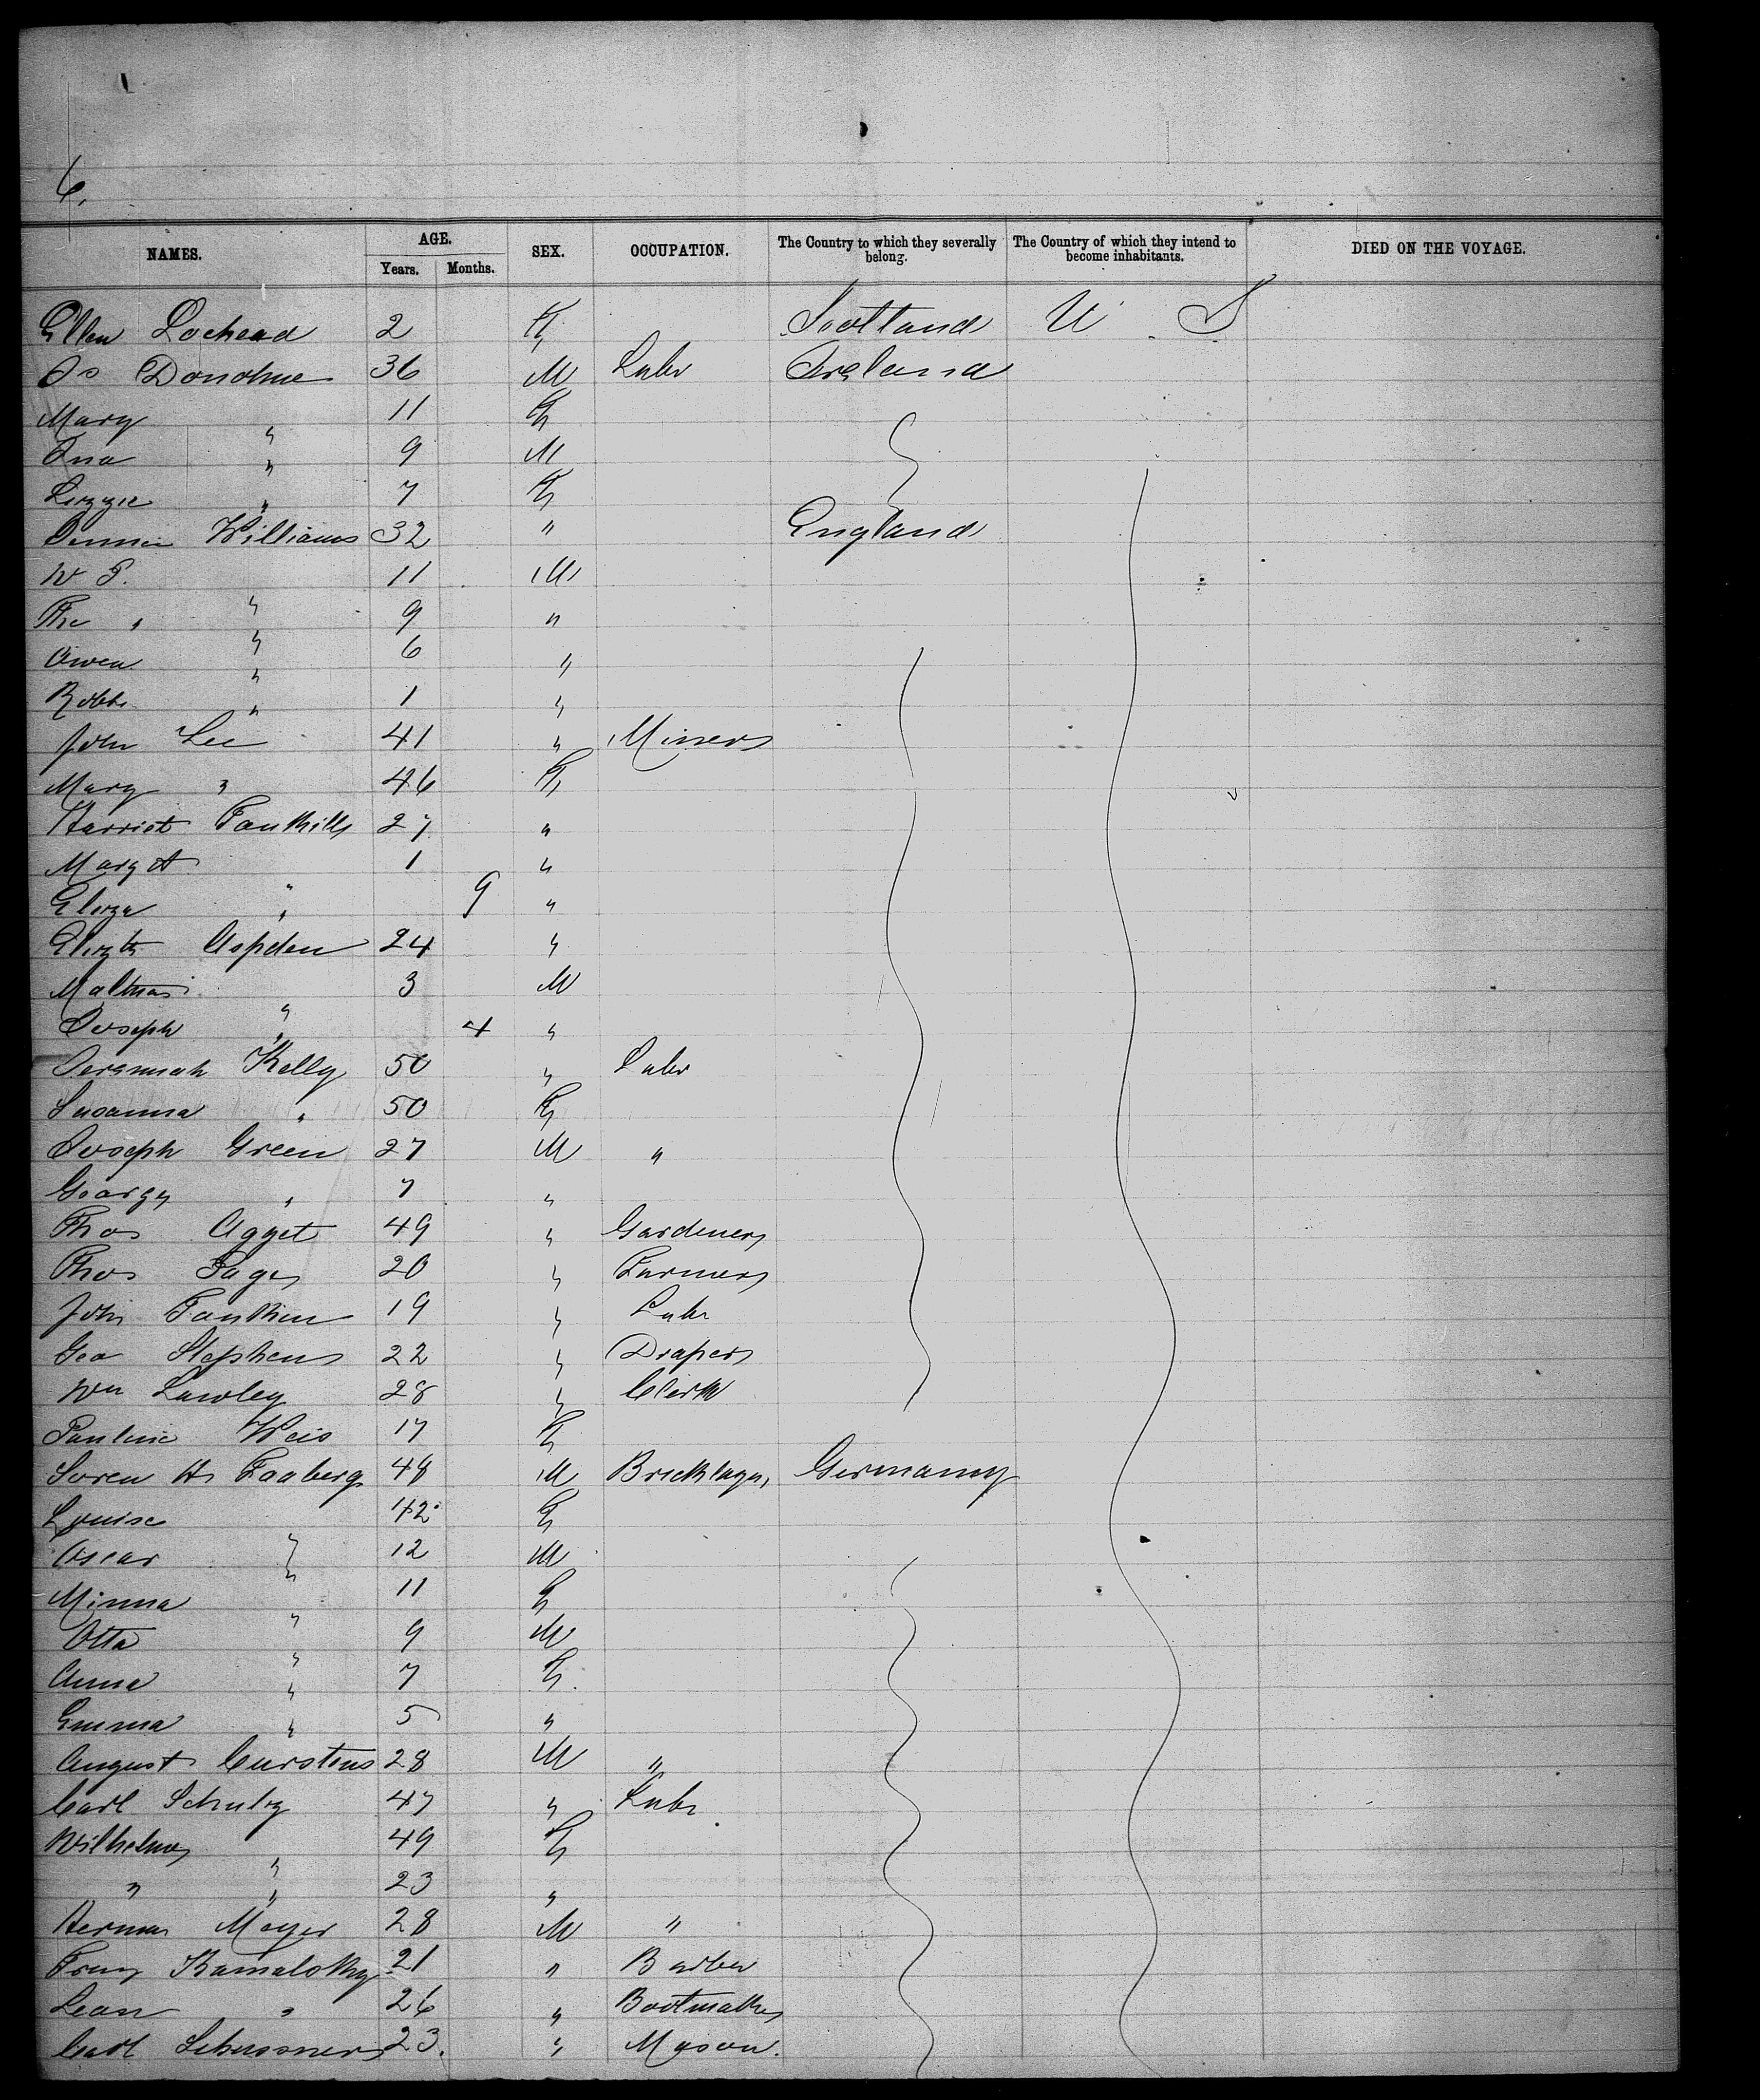 6.
NAMES. AGE. Years. Months. SEX. OCCUPATION. The Country to which they severally belong. The Country of which they intend to become inhabitants. DIED ON THE VOYAGE.
Ellen Lochead 2 F Scotland U S
Donohue 36 M Labr Ireland
Mary " 11 F
Ina " 9 M
Lizzie " 7 F
Williams 32 " England
W P. " 11 M
Tho " " 9 "
Owen " 6 "
Robt " 1 "
John Lee 41 " Miner
Mary " 46 F
Harriet 27 "
Margt " 1 "
Eliza " 9 "
Elizth Aspden 24 "
" 3 M
Joseph " 4 "
Jeremiah Kelly 50 " Labr
Susanna " 50 F
Joseph Green 27 M "
George " 7 "
Thos Agget 49 " Gardener
Thos Page 20 " Farmer
John 19 " Labr
Geo Stephens 22 " Draper
Wm Lawley 28 " Clerk
Pauline Weis 17 F
Soren Hs Faaberg 48 M Bricklayer Germany
Louise " 42 F
Oscar " 12 M
Minna " 11 F
Otto " 9 M
Anna " 7 F
Emma " 5 "
August Curstens 28 M "
Carl Schulz 47 " Labr
Wilhelm " 49 F
" " 23 "
Herman Meyer 28 M "
Franz 21 " Barber
Leon " 26 " Bootmaker
Carl 23 " Mason.